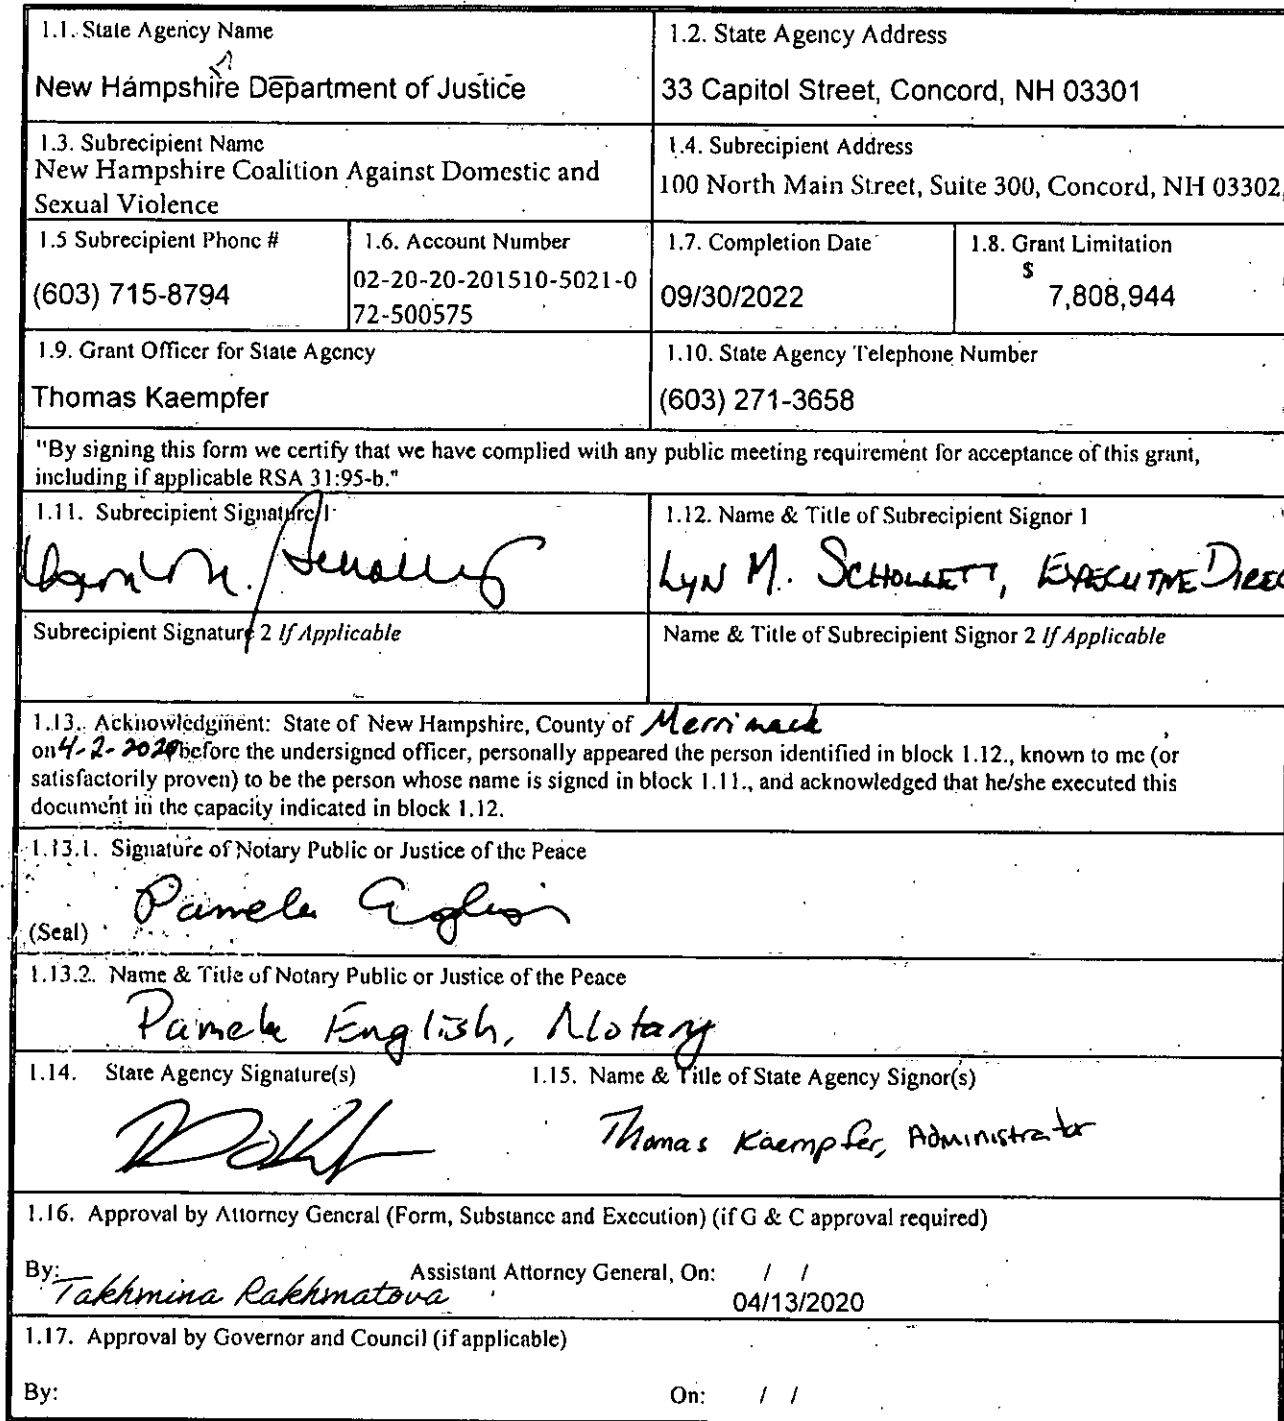 1.1. State Agency Name
New Hampshire Department of Justice
1.2. State Agency Address
33 Capitol Street, Concord, NH 03301
1.3. Subrecipient Name
New Hampshire Coalition Against Domestic and
Sexual Violence
1.4. Subrecipient Address
100 North Main Street, Suite 300, Concord, NH 03302,
1.5 Subrecipient Phone #
(603) 715-8794
1.6. Account Number
02-20-20-201510-5021-0
72-500575
1.7. Completion Date
09/30/2022
1.8. Grant Limitation
$
7,808,944
1.9. Grant Officer for State Agency
Thomas Kaempfer
1.10. State Agency Telephone Number
(603) 271-3658
"By signing this form we certify that we have complied with any public meeting requirement for acceptance of this grant,
including if applicable RSA 31:95-b."
1.11. Subrecipient Signature 1
1.12. Name & Title of Subrecipient Signor 1
LYN M. SCHOLLETT, EXECUTIVE DIREC
Subrecipient Signature 2 If Applicable
Name & Title of Subrecipient Signor 2 If Applicable
1.13. Acknowledgment: State of New Hampshire, County of Merrimack ,
on 4-2-2020 before the undersigned officer, personally appeared the person identified in block 1.12., known to me (or
satisfactorily proven) to be the person whose name is signed in block 1.11., and acknowledged that he/she executed this
document in the capacity indicated in block 1.12.
1.13.1. Signature of Notary Public or Justice of the Peace
Pamela English
(Seal)
1.13.2. Name & Title of Notary Public or Justice of the Peace
Pamela English, Notary
1.14. State Agency Signature(s)
1.15. Name & Title of State Agency Signor(s)
Thomas Kaempfer, Administrator
1.16. Approval by Attorney General (Form, Substance and Execution) (if G & C approval required)
By: Takhmina Rakhmatova Assistant Attorney General, On: / /
04/13/2020
1.17. Approval by Governor and Council (if applicable)
By: On: / /